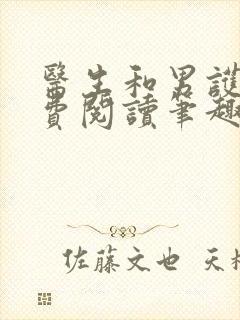 醫生和男護
費閱讀筆趣
佐藤文也 天